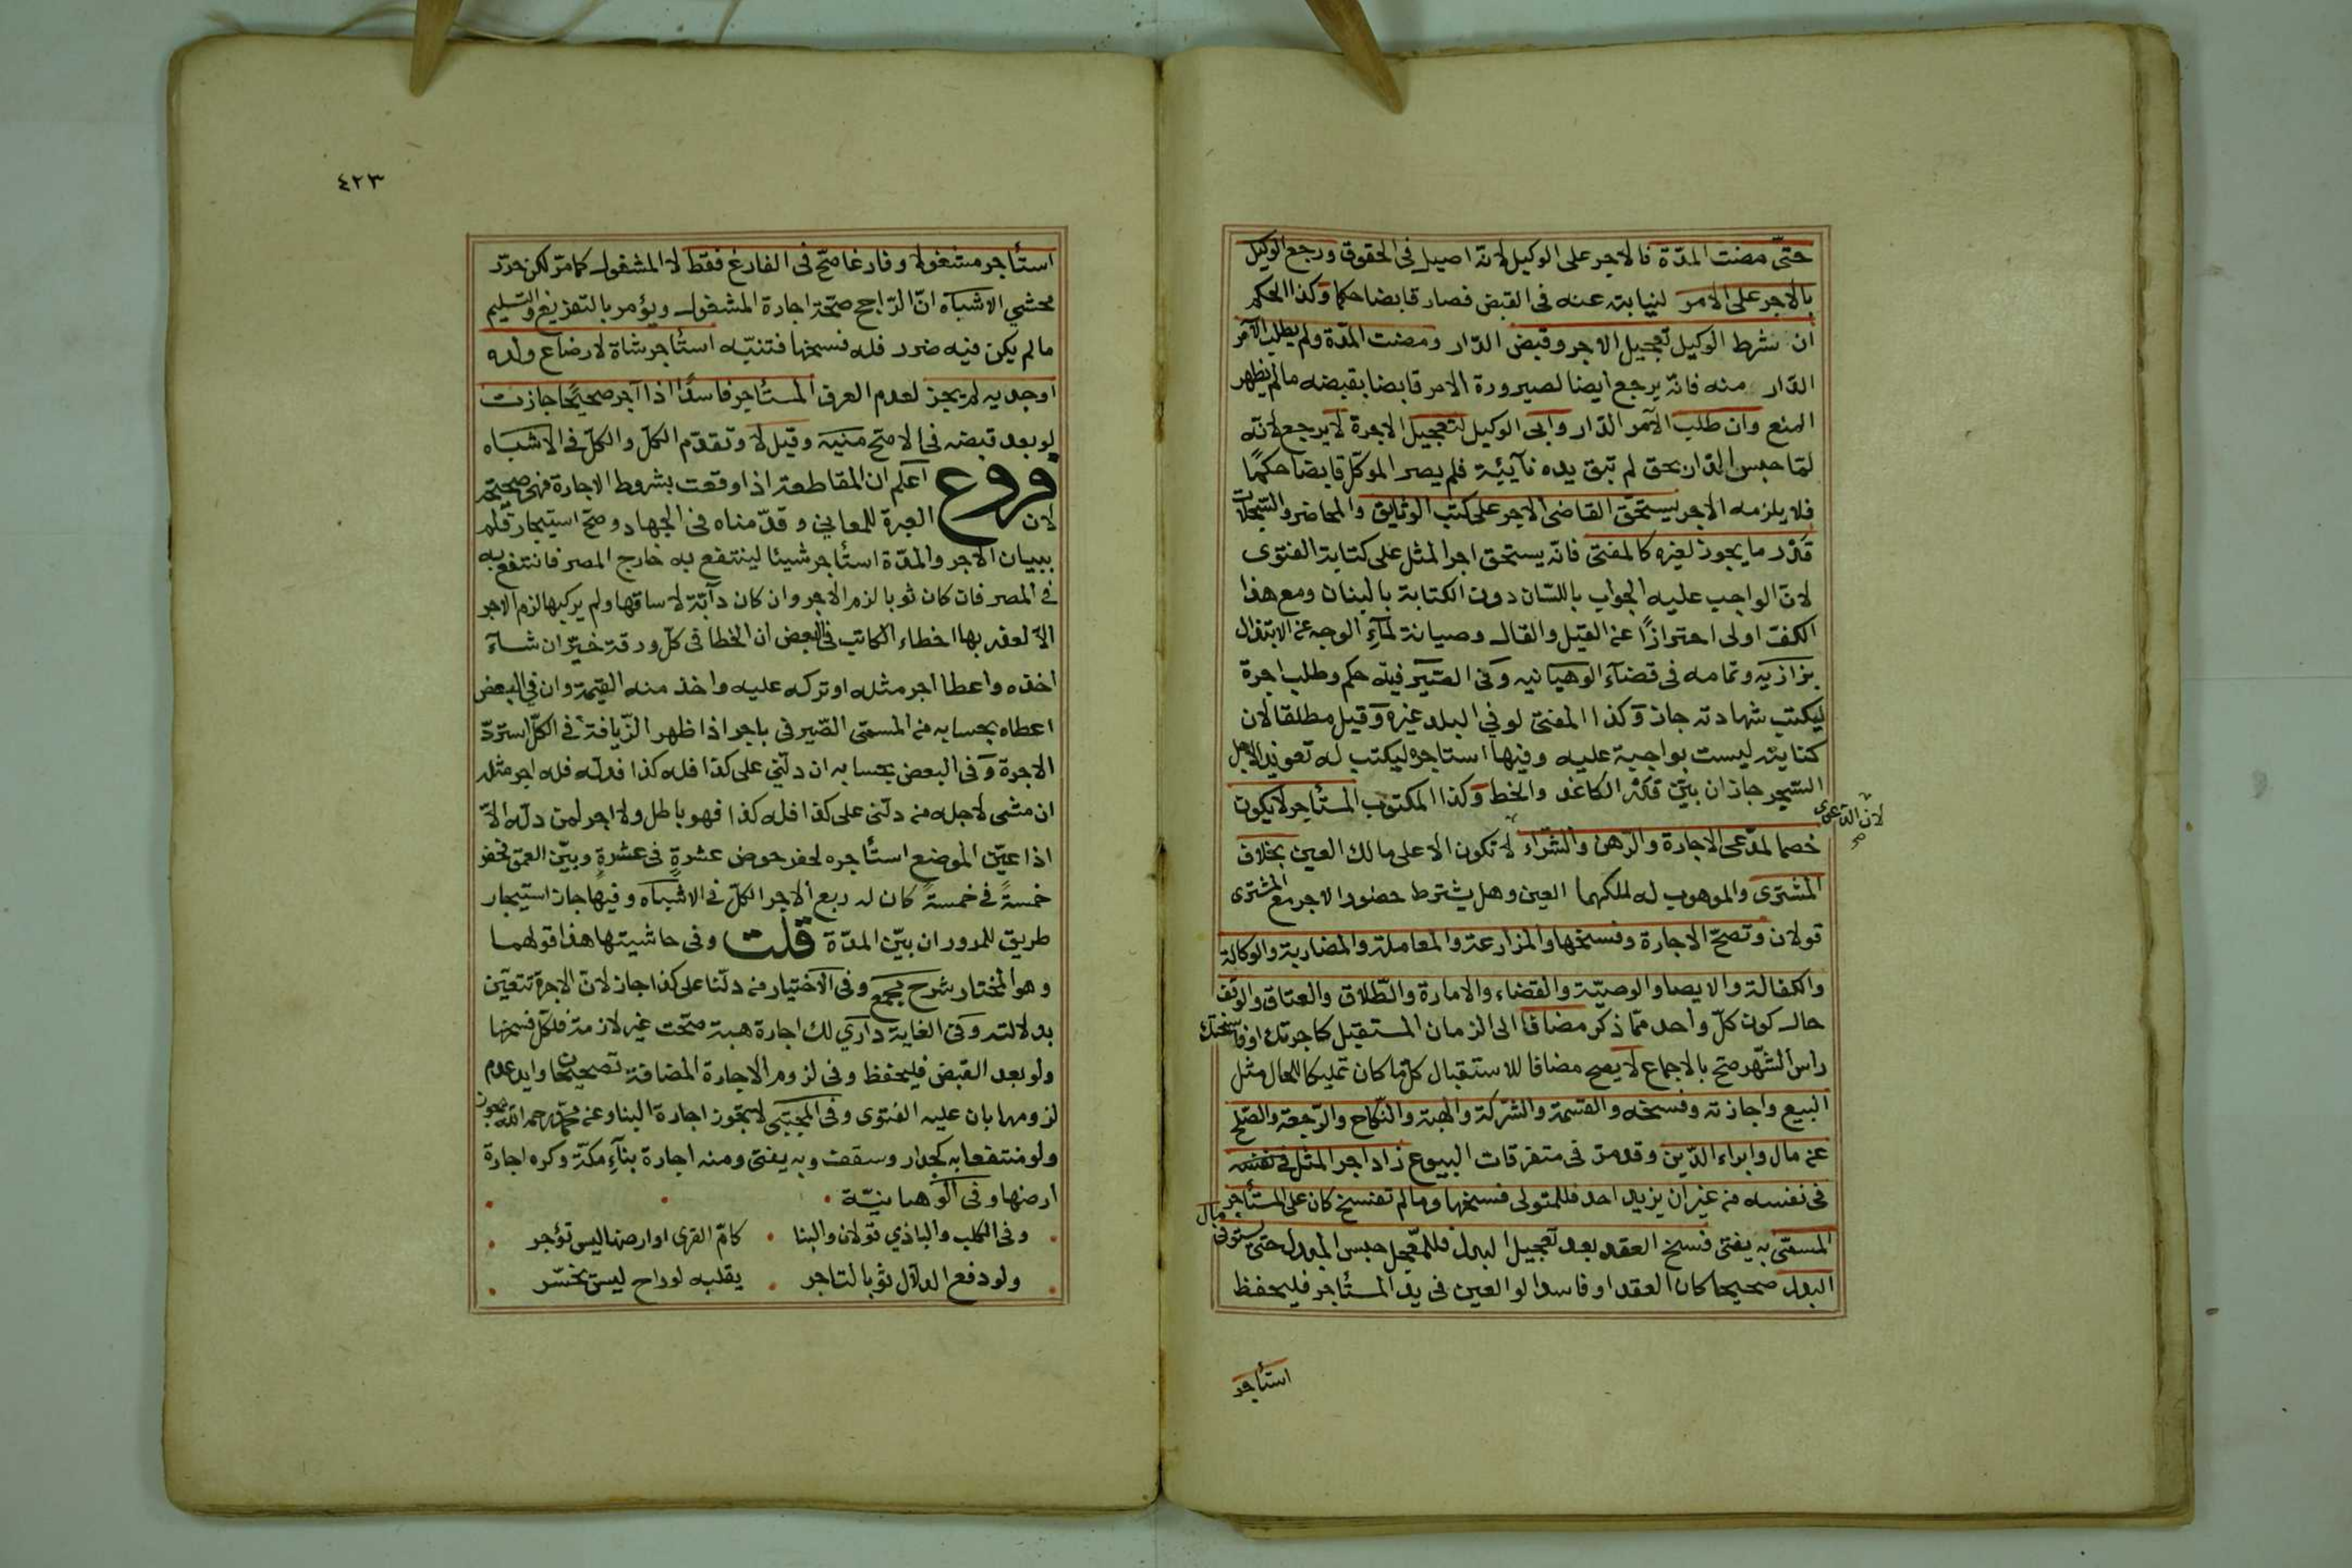 حتّى مضت المدّة فالاجر على الوكيل لانّه اصيل فى الحقوق ورجع الوكيل
بالاجر على الامر لنيابته عنه فى القبض فصار قابضا حكما وكذا الحكم
ان شرط الوكيل تعجيل الاجر وقبض الدّار ومضت المدّة ولم يطلب الآمر
الدّار منه فانّه يرجع ايضا لصيرورة الامر قابضا بقبضه ما لم يظهر
المنع وان طلب الآمر الدّار وابى الوكيل لتعجيل الاجرة لا يرجع لانّه
لمّا حبس الدّار بحق لم تبق يده نآيبة فلم يصر الموكّل قابضا حكمًا
فلا يلزمه الاجر يستحقّ القاضى الاجر على كتب الوثايق والمحاضر والسّجلّات
قدر ما يجوز لغيره كالمفتى فانّه يستحق اجر المثل على كتابة الفتوى
لانّ الواجب عليه الجواب باللسّان دون الكتابة بالبنان ومع هذا
الكفّ اولى احترازًا عن القيل والقال وصيانة لمآءِ الوجه عن الابتذال
بزازيه وتمامه فى قضآء الوهبانيه وفى الصّيرفيه حكم وطلب اجرة
ليكتب شهادته جاز وكذا المفتى لو فى البلد غيره وقيل مطلقا لان
كتابته ليست بواجبة عليه وفيها استاجره ليكتب له تعويذ لاجل
السّحر جاز ان بيّن قدر الكاغد والخط وكذا المكتوب المستأجر لا يكون
لانّ الدّعوى صح
خصما لمدّعى الاجارة والرّهن والشّراء لا تكون الا على مالك العين بخلاف
المشترى والموهوب له لملكهما العين وهل يشترط حضور الاجر مع المشترى
قولان وتصحّ الاجارة وفسخها والمزارعة والمعاملة والمضاربة والوكالة
والكفالة والايصا والوصيّة والقضاء والامارة والطّلاق والعتاق والوقف
حال كون كلّ واحد ممّا ذكر مضافا الى الزمان المستقبل كاجرتك او فاسختك
راس الشّهر صحّ بالاجماع لا يصح مضافا للاستقبال كلّ ما كان تمليكا للحال مثل
البيع واجازته وفسخه والقسمة والشّركة والهبة والنّكاح والرّجعة والصّلح
عن مال وابراء الدّين وقد مرّ فى متفرقات البيوع زاد اجر المثل فى نفسه
فى نفسه من غير ان يزيد احد فللمتولى فسخها وما لم تفسخ كان على المستأجر
المسمّى به يفتى فسخ العقد بعد تعجيل البدل فللمعجّل حبس المبدل حتى يستوفى مال
البدل صحيحا كان العقد او فاسدا لو العين فى يد المستأجر فليحفظ
استأجر
٤٢٣
استأجر مشغولا وفارغا صحّ فى الفارغ فقط لا المشغول كما مرّ لكن حرّر
محشي الاشباه انّ الرّاجح صحّة اجارة المشغول ويؤمر بالتفريغ والتسليم
ما لم يكن فيه ضرر فله فسخها فتنبّه استأجر شاة لارضاع ولده
او جديه لم يجز لعدم العرف المستأجر فاسدًا اذا آجر صحيحًا جازت
لو بعد قبضه فى الاصحّ منيه وقيل لا وتقدّم الكلّ والكلّ فى الاشباه
فروع اعلم ان المقاطعة اذا وقعت بشروط الاجارة فهى صحيحة
لان العبرة للمعانى وقدّمناه فى الجهاد وصحّ استيجار قلم
ببيان الاجر والمدّة استأجر شيئا لينتفع به خارج المصر فانتفع به
فى المصر فان كان ثوبا لزم الاجر وان كان دآبّة لا ساقها ولم يركبها لزم الاجر
الّا لعذر بها اخطاء الكاتب فى البعض ان الخطا فى كلّ ورقة خيّر ان شآء
اخذه واعطا اجر مثله او تركه عليه واخذ منه القيمة وان فى البعض
اعطاه بحسابه من المسمّى الصّيرفى باجر اذا ظهر الزّيافة فى الكلّ استردّ
الاجرة وفى البعض بحسابه ان دلّنى على كذا فله كذا فدلّه فله اجر مثله
ان مشى لاجله من دلّنى على كذا فله كذا فهو باطل ولا اجر لمن دلّه الّا
اذا عيّن الموضع استأجره لحفر حوض عشرةٍ فى عشرةٍ وبيّن العمق فحفر
خمسةً فى خمسةً كان له ربع الاجر الكلّ فى الاشباه وفيها جاز استيجار
طريق للمرور ان بيّن المدّة قلت وفى حاشيتها هذا قولهما
وهو المختار شرح مجمع وفى الاختيار من دلّنا على كذا جاز لانّ الاجرة تتعيّن
بدلالته وفى الغاية دارى لك اجارة هبة صحّت غير لازمة فلكلّ فسخها
ولو بعد القبض فليحفظ وفى لزوم الاجارة المضافة تصحيحان وايد عدم
لزومها بان عليه الفتوى وفى المجتبى لا تجوز اجارة البنا وعن محمّد رحمه الله تجوز
ولو منتفعا به كجدار وسقف وبه يفتى ومنه اجارة بنآءِ مكّة وكره اجارة
ارضها وفى الوهبانيّة
وفى الكلب والباذي قولان والبنا كامّ القرى او ارضها ليس تؤجر
ولو دفع الدلّال ثوبا لتاجر يقلبه لو راح ليس يخسّر